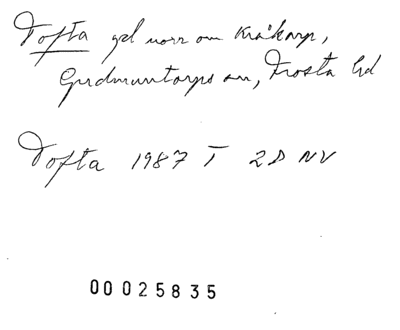 Tofta gd norr om Kråkarp,
Gudmuntorps sn, Frosta hd
Tofta 1987 T 2D NV
00025835